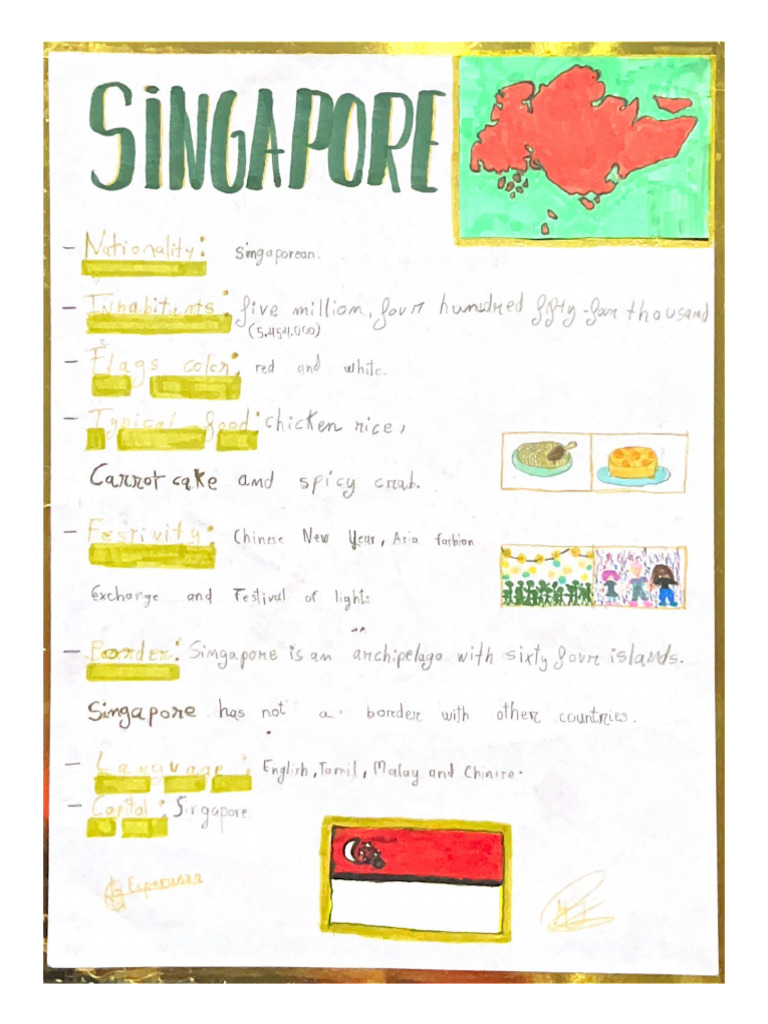 SiNGAPORE
- Nationality: Singaporean.
- Inhabitants: five million, four hundred fifty-four thousand
(5.454.000)
- Flags color: red and white.
- Typical food: chicken rice,
Carrot cake and spicy crab.
- Festivity: Chinese New Year, Asia fashion
Exchange and Festival of light.
- Border: Singapore is an archipelago with sixty four islands.
Singapore has not a border with other countries.
- Language: English, Tamil, Malay and Chinese.
- Capital: Singapore
Esperanza